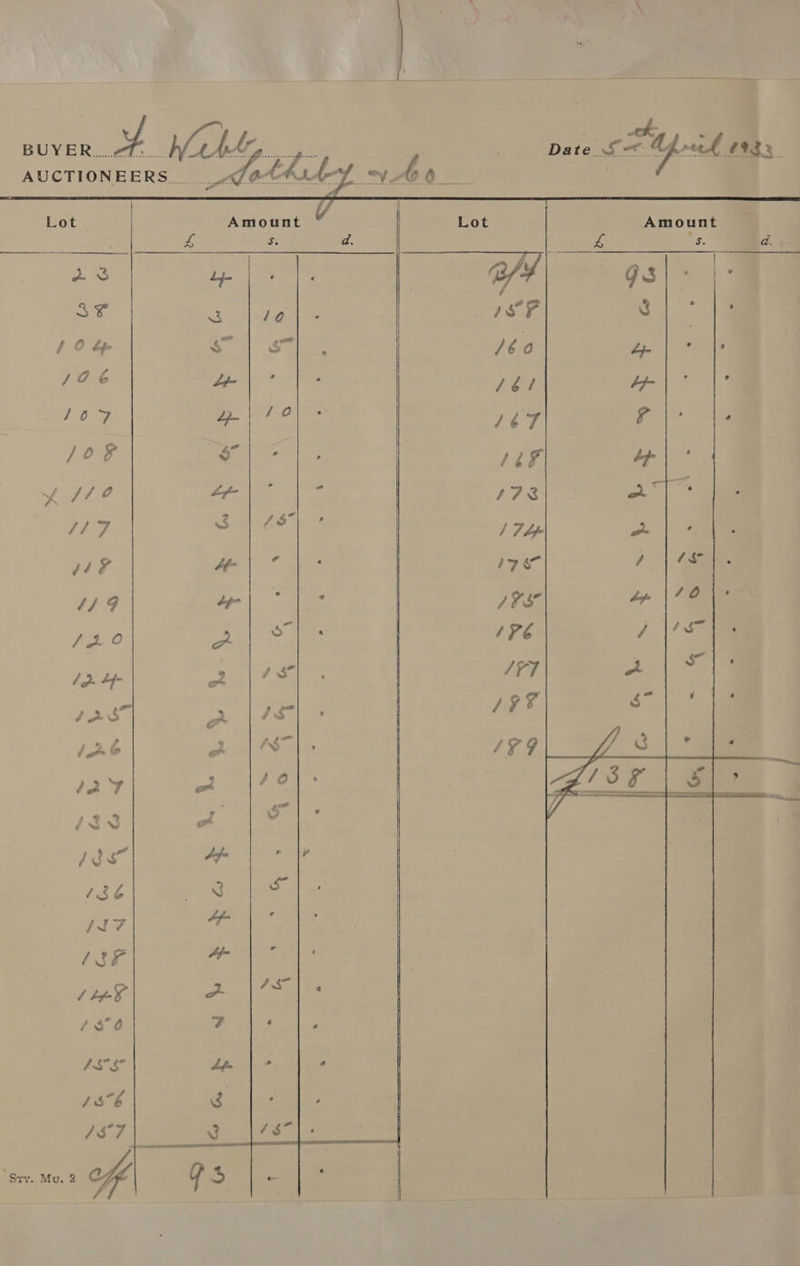 BUYER A. Date 5th April
AUCTIONEERS Sotheby & Co
Lot Amount Lot Amount
£ s. d. £ s. d.
23 4 - - B/f 93 - -
38 3 10 - 158 3 - -
104 5 5 - 160 4 - -
106 4 - - 161 4 - -
107 4 10 - 167 8 - -
108 5 - - 168 4 - -
x 110 4 - - 173 2 - -
117 3 15 - 174 2 - -
118 4 - - 175 1 15 -
119 4 - - 185 4 10 -
120 2 5 - 186 1 15 -
124 2 15 - 187 2 5 -
125 2 15 - 188 5 - -
126 2 15 - 189 3 - -
127 2 10 - £138 5 -
133 2 5 -
135 4 - -
136 3 5 -
137 4 - -
138 4 - -
148 2 15 -
150 7 - -
155 4 - -
156 3 - -
157 3 15 -
Sty. Mu. 2 c/f 93 - -